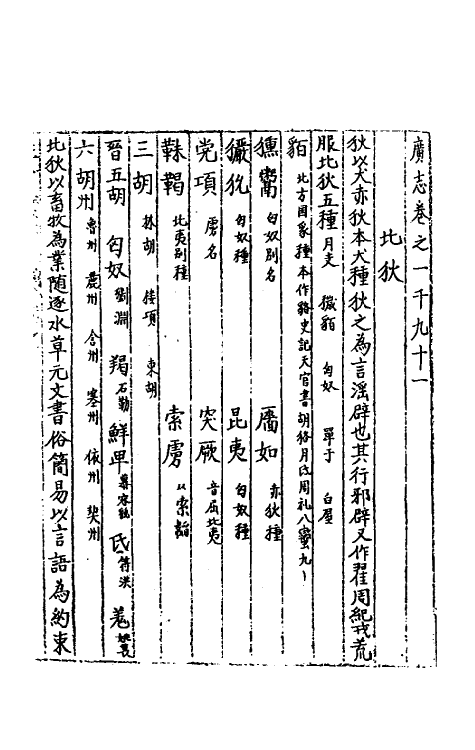 廣志卷之一千九十一
北狄
狄以犬赤狄本犬種狄之為言滛辟也其行邪辟又作翟周紀戎荒
服北狄五種 月支 獫貊 匈奴 單于 白屋
貊 北方國豸種本作貉史記天官書胡貉月氏周礼八蠻九〡
獯鬻 匈奴別名 廧如 赤狄種
玁狁 匈奴種 昆夷 匈奴種
党項 虜名 突厥 音屈北夷
靺鞨 北夷別種 索虜 以索辮
三胡 林胡 樓項 東胡
晉五胡 匈奴 劉淵 羯 石勒 鮮卑 慕容皝 氐 苻洪 羗 姚萇
六胡州 魯州 麗州 含州 塞州 依州 契州
北狄以畜牧為業隨逐水草无文書俗簡易以言語為約束